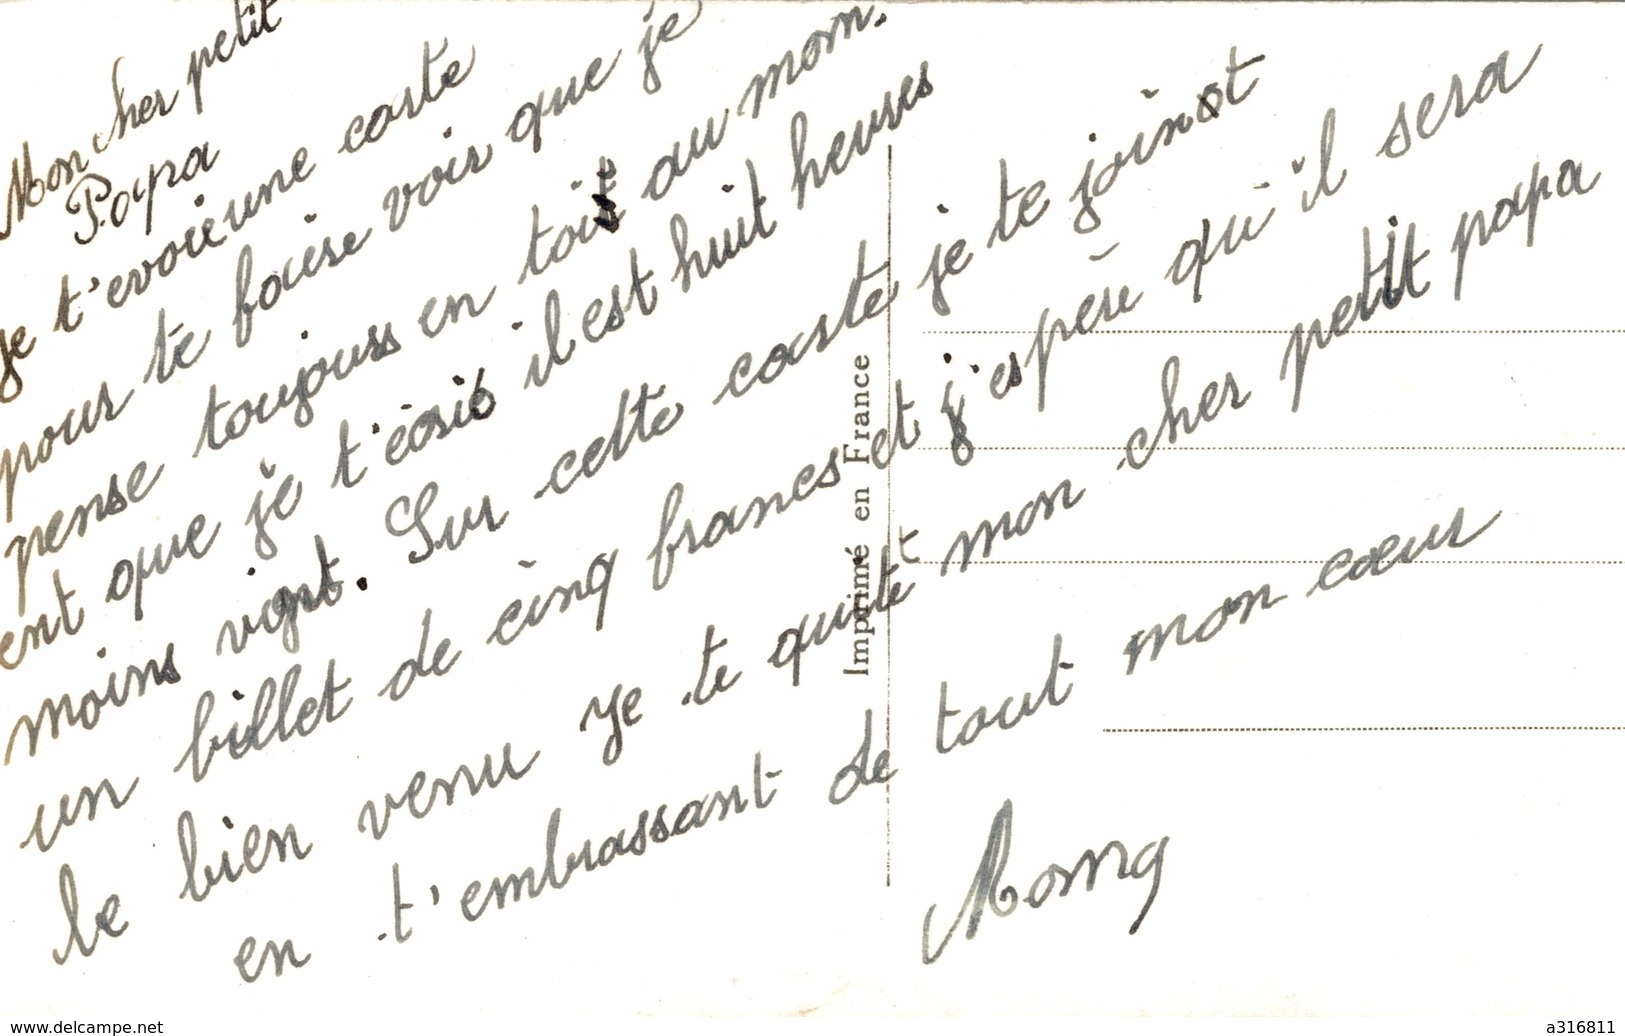 Mon cher petit
Papa
Je t'evoie une carte
pour te faire voir que je
pense toujours en toi au mom.
ent que je t'écris il est huit heures
moins vignt. Sur cette carte je te joint
un billet de cinq francs et j'espère qu'il sera
le bien venu je te quitte mon cher petit papa
en t'embrassant de tout mon cœur
Imprimé en France
www.delcampe.net
a316811